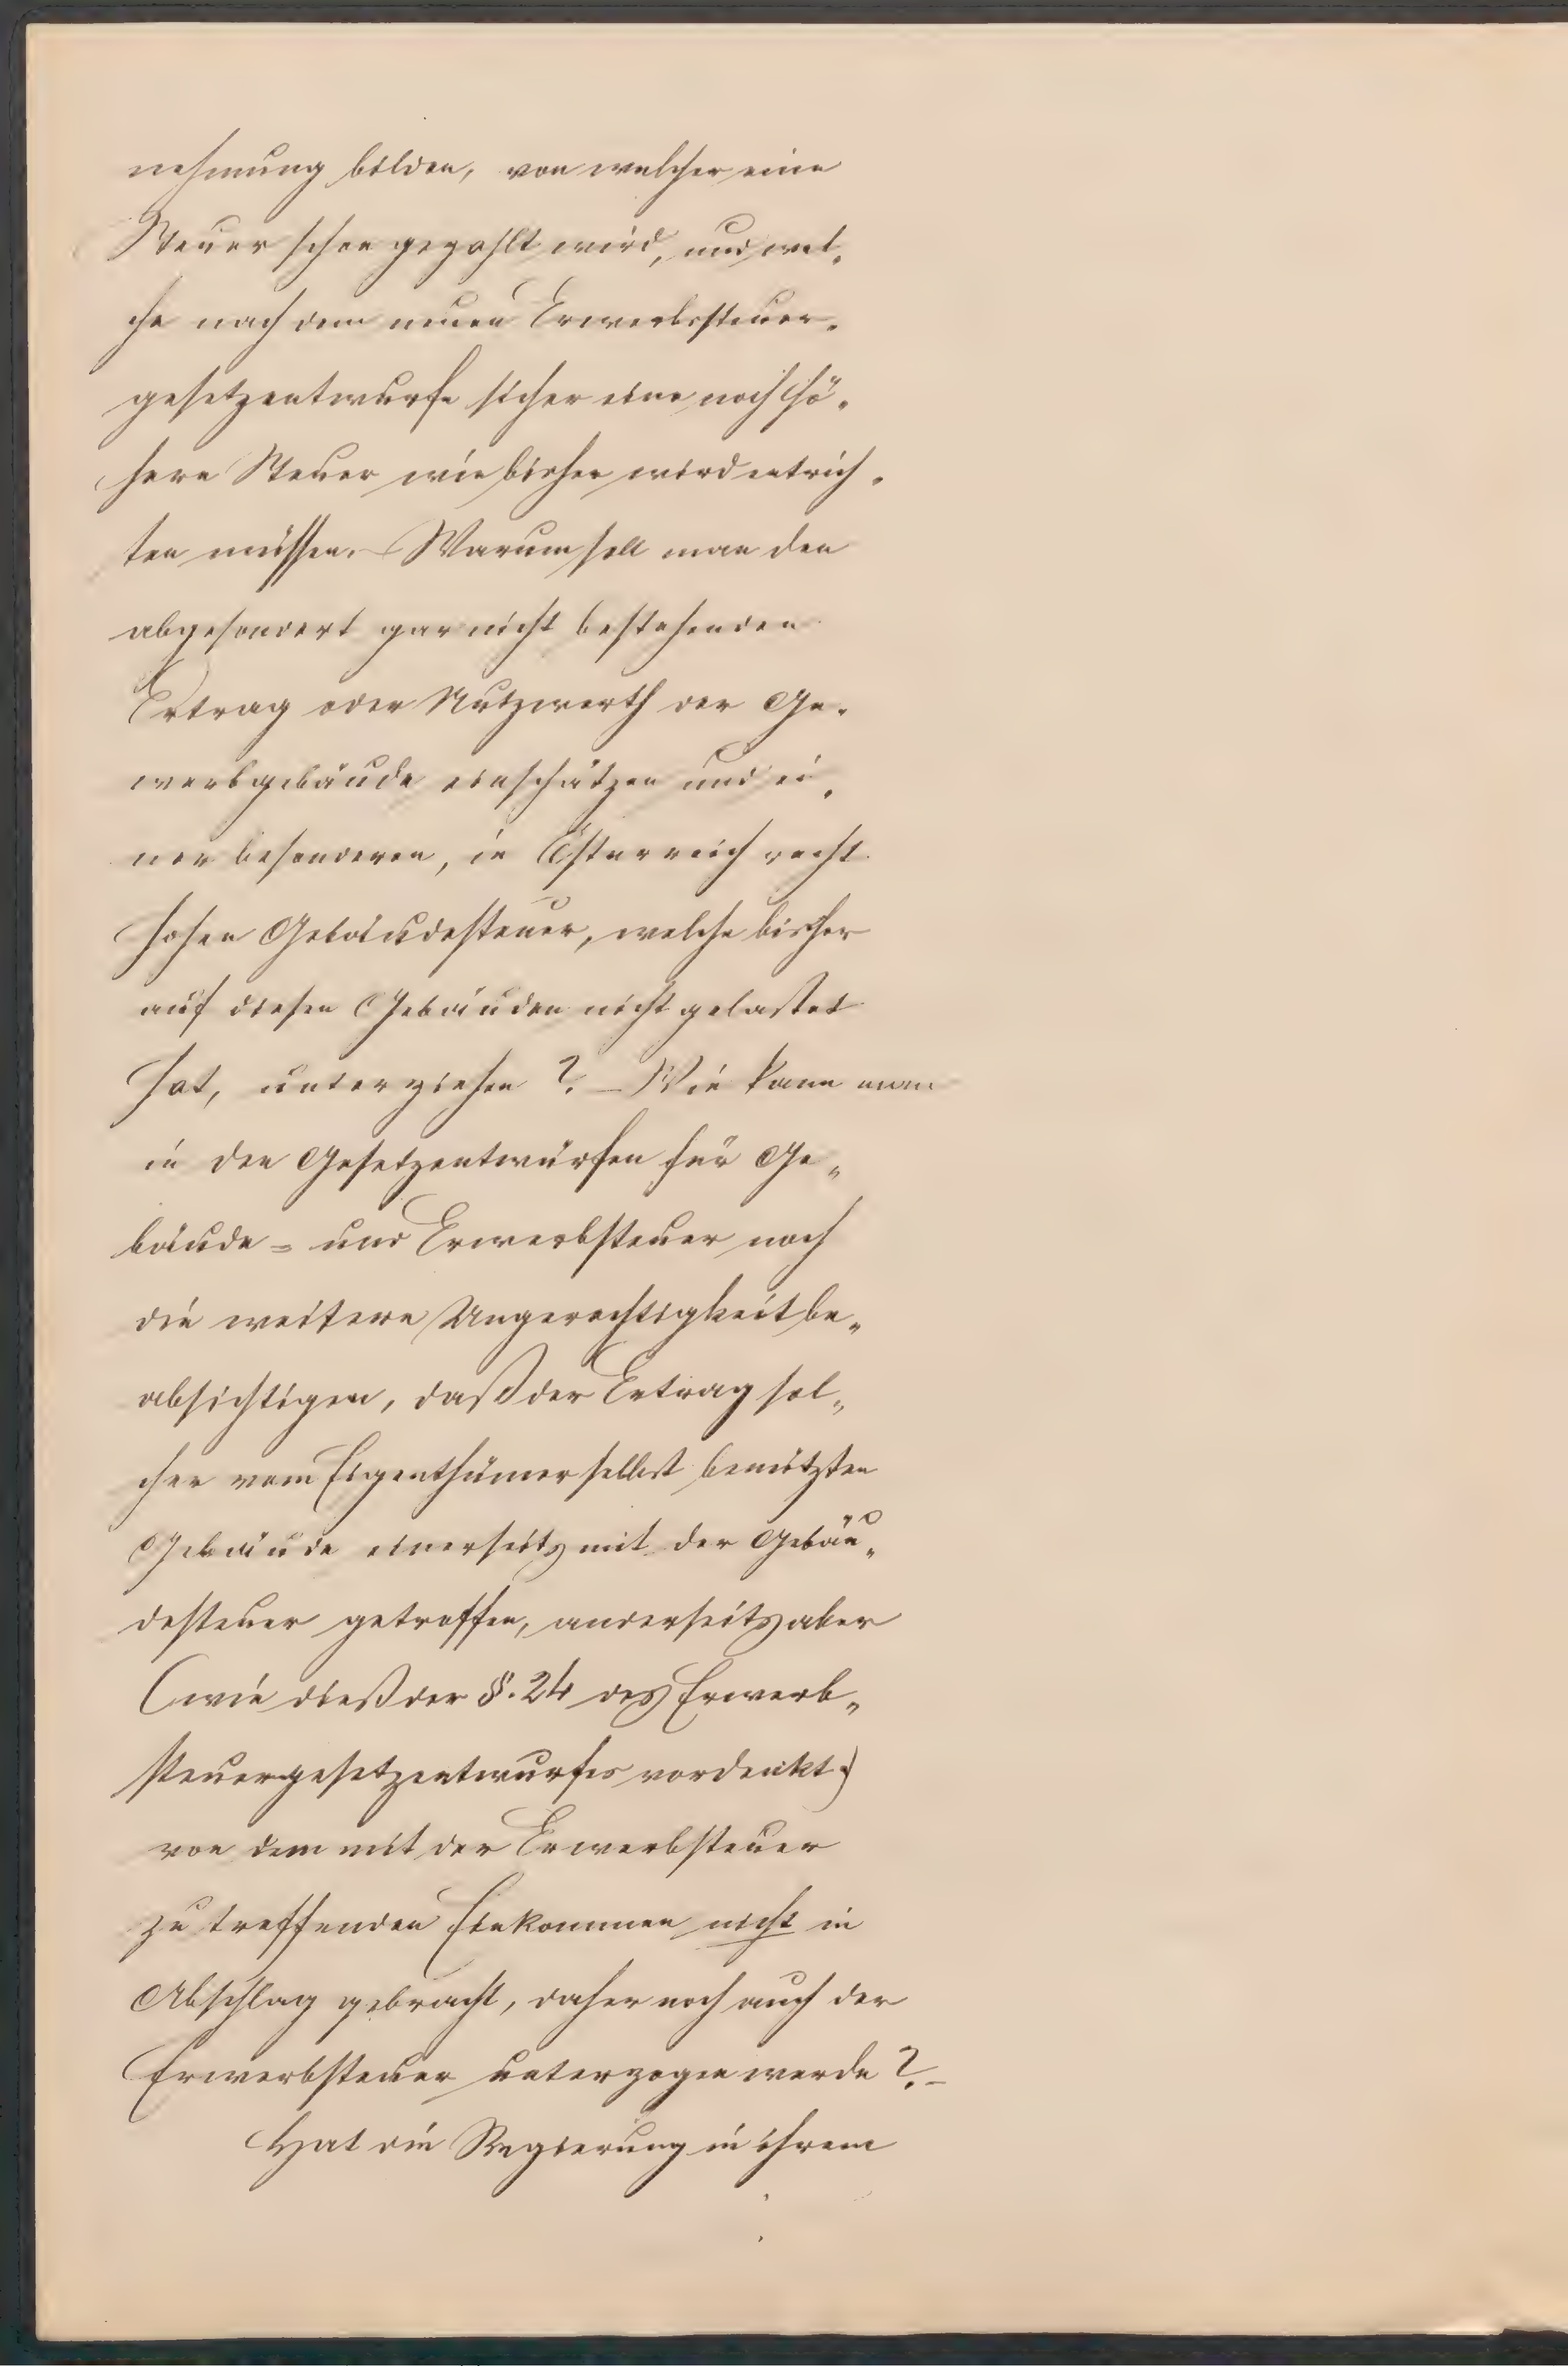 nehmung bilden, von welcher eine
Steuer schon gezahlt wird, und wel-
che nach dem neuen Erwerbsteuer-
gesetzentwurfe sicher eine noch hö-
here Steuer wie bisher wird entrich-
ten müssen. – Warum soll man den
abgesondert gar nicht bestehenden
Ertrag oder Nutzwerth der Ge-
werbgebäude einschätzen und ei-
ner besonderen, in Österreich recht
hohen Gebäudesteuer, welche bisher
auf diesen Gebäuden nicht gelastet
hat, unterziehen ? – Wie kann man
in den Gesetzentwürfen für Ge„
bäude= und Erwerbsteuer noch
die weitere Ungerechtigkeit be„
absichtigen, daß der Ertrag sol„
cher vom Eigenthümer selbst benützten
Gebäude einerseits mit der Gebäu„
desteuer getroffen, anderseits aber
(wie dieß der §. 24 des Erwerb„
steuergesetzentwurfes vordenkt)
von dem mit der Erwerbsteuer
zu treffenden Einkommen nicht in
Abschlag gebracht, daher noch auch der
Erwerbsteuer unterzogen werde ? –
Hat die Regierung in ihrem